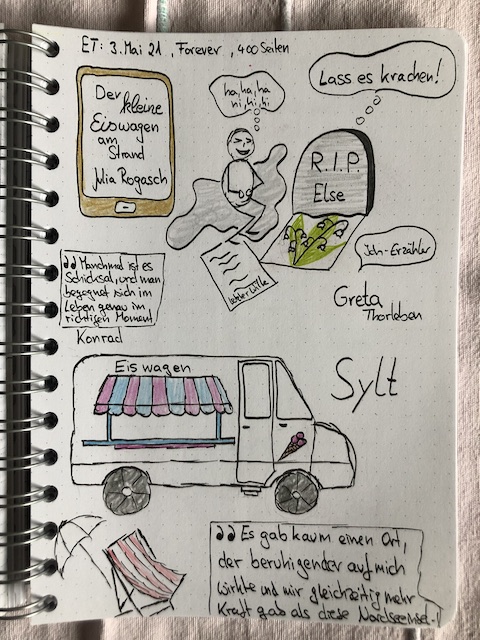 ET: 3. Mai 21, Forever, 400 Seiten
Der kleine
Eiswagen
am
Strand
Julia Rogasch
ha, ha, ha
hi, hi, hi
Lass es krachen!
R.I.P.
Else
letzter Wille
Ich-Erzähler
Greta
Thorleben
"Manchmal ist es
Schicksal, und man
begegnet sich im
Leben genau im
richtigen Moment"
Konrad
Eiswagen
Sylt
"Es gab kaum einen Ort,
der beruhigender auf mich
wirkte und mir gleichzeitig mehr
Kraft gab als diese Nordseeinsel."